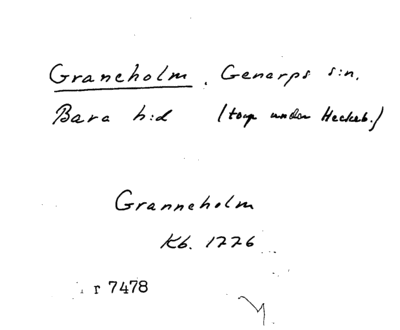 Graneholm. Genarps s:n.
Bara h:d (torp under Heckeb.)
Granneholm
Kb. 1226
r 7478